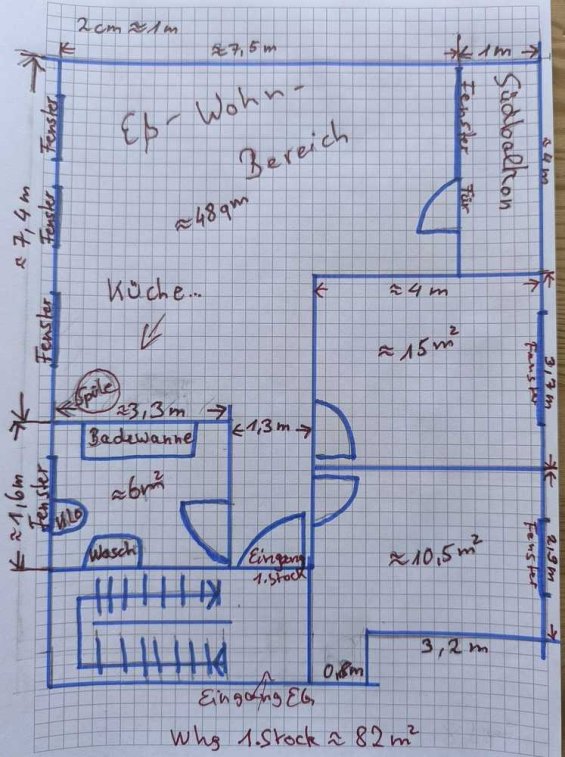 2cm ≈ 1m
≈7,5m
1m
Eß-Wohn-
Bereich
≈48qm
Fenster
Fenster
Fenster
≈7,4m
Fenster
Tür
Südbalkon
≈4m
Küche...
Spüle
≈4m
≈15m²
Fenster
3,7m
≈3,3m
1,3m
Badewanne
≈6m²
Fenster
≈1,6m
Wasch
Eingang
1.Stock
≈10,5m²
Fenster
2,9m
3,2m
0,8m
Eingang EG
Whg 1.Stock ≈ 82m²